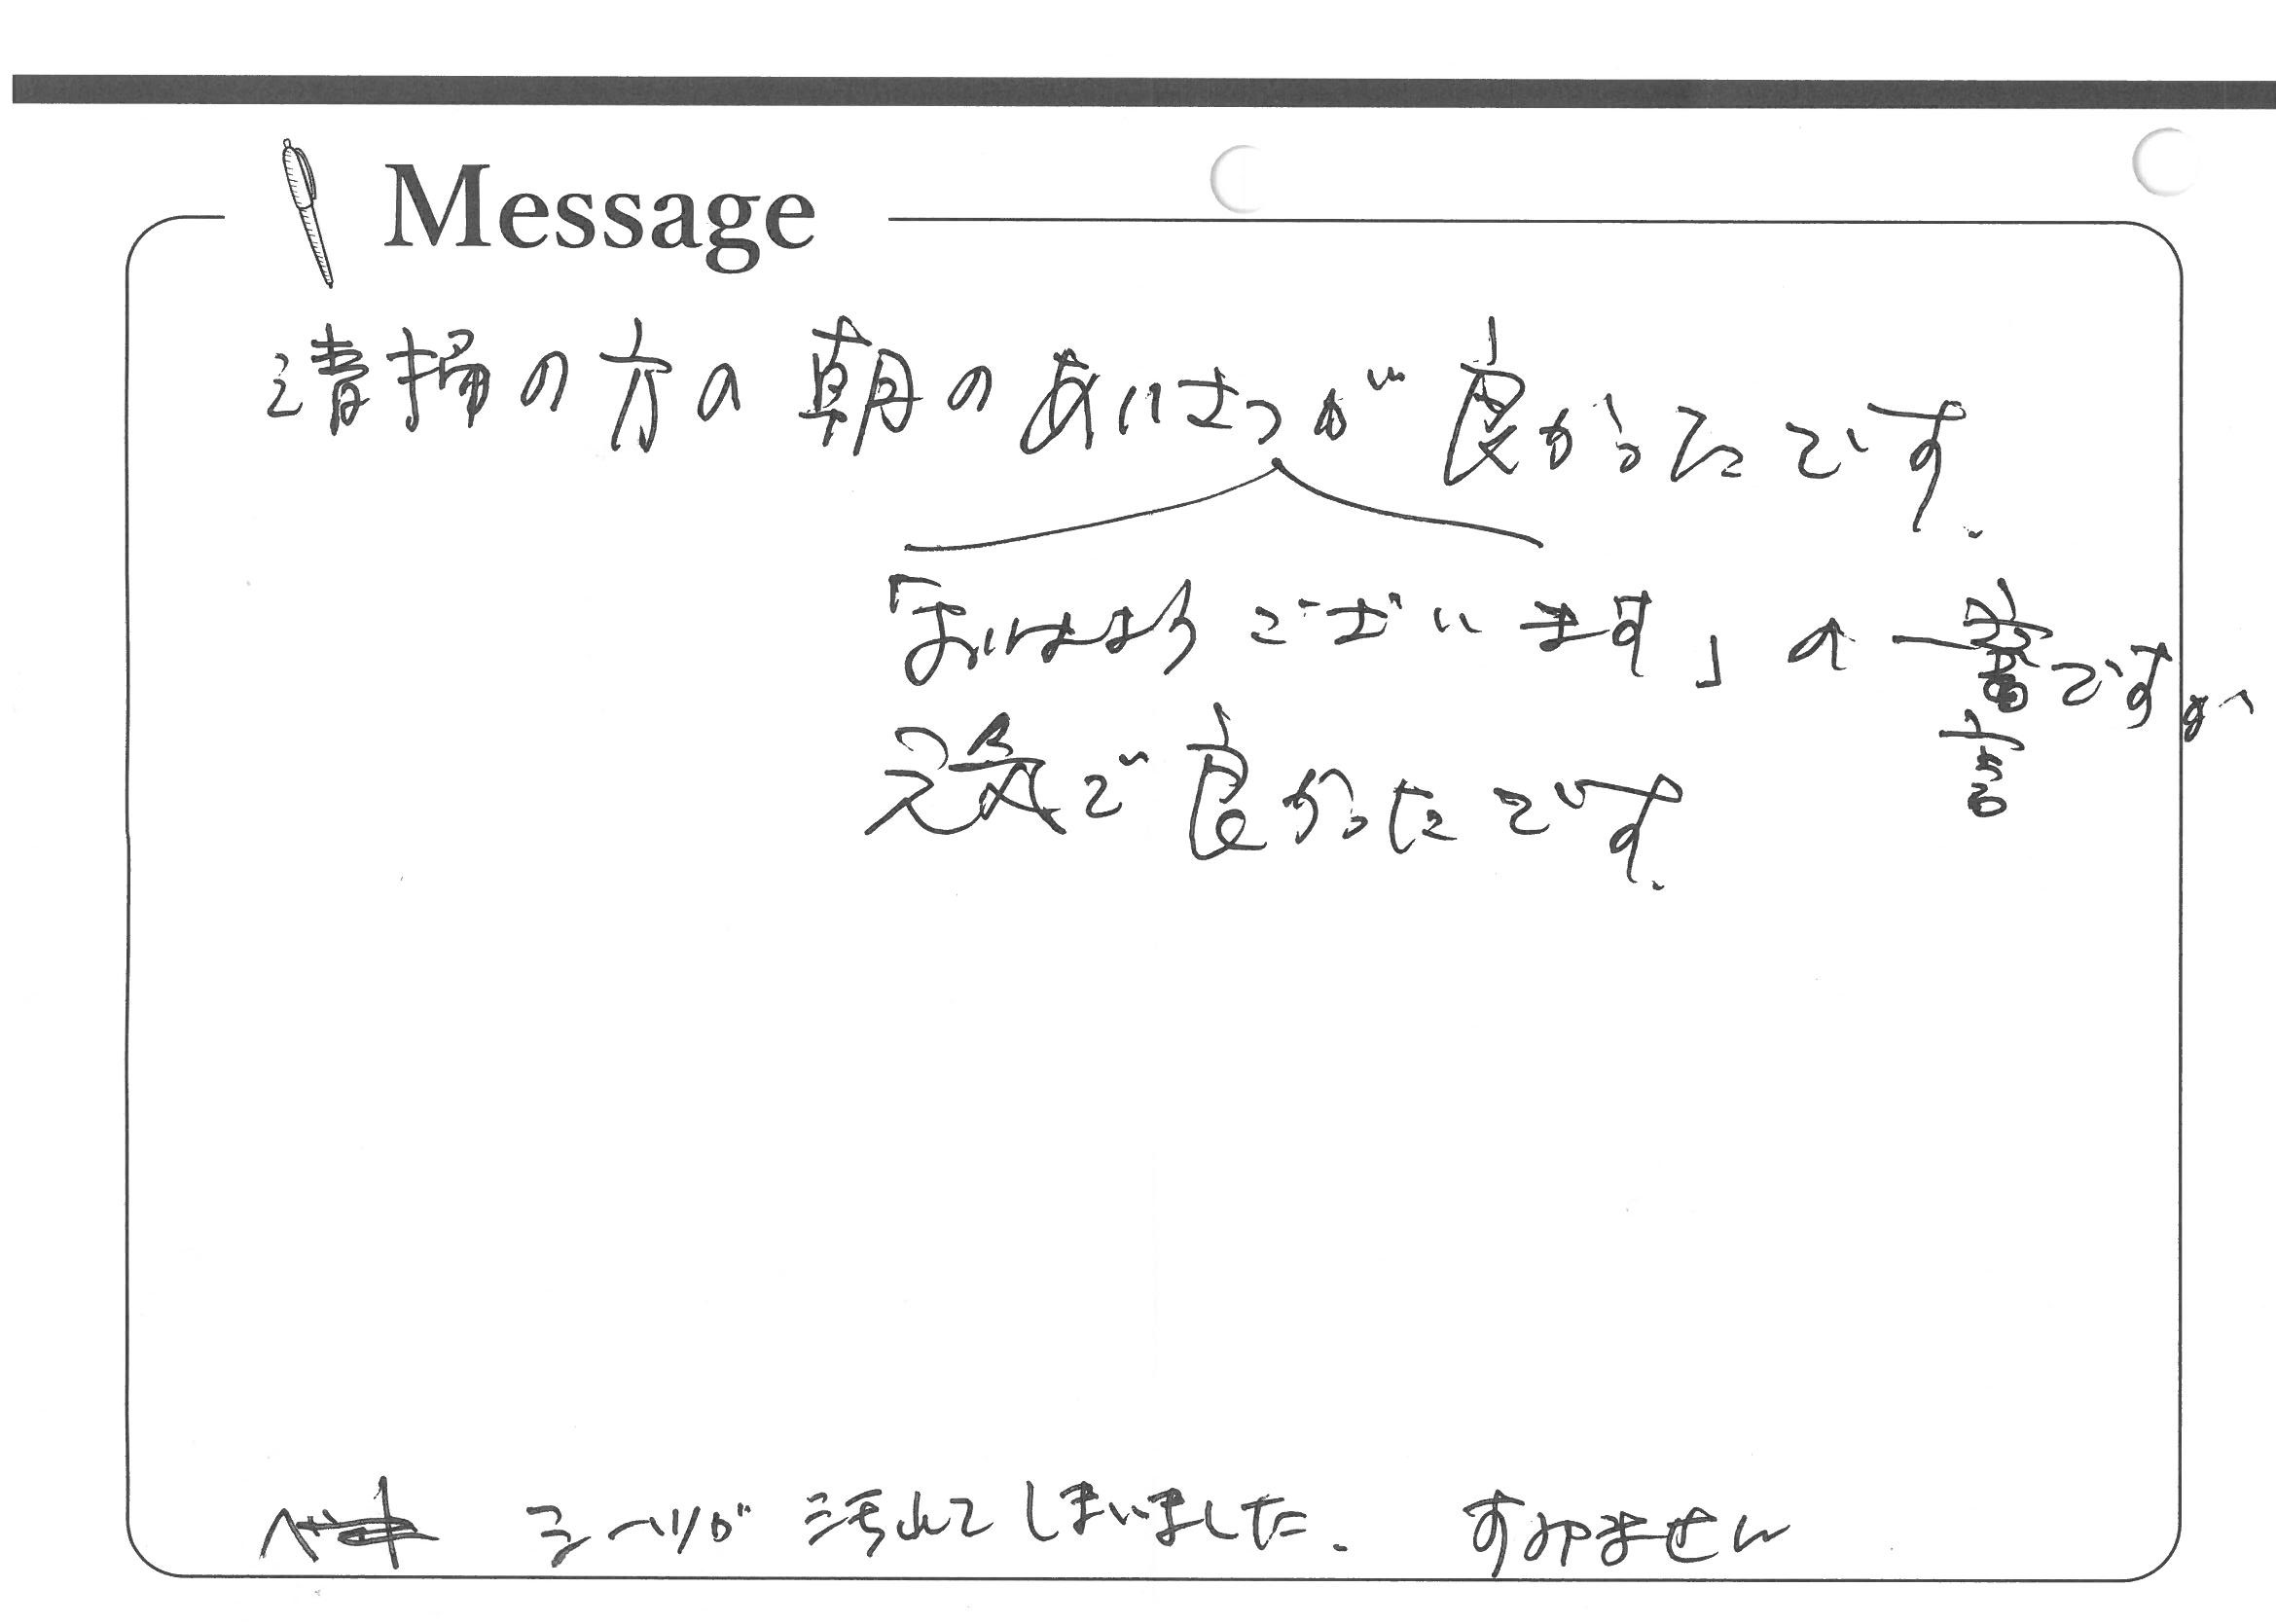 Message
清掃の方の朝のあいさつが良かったです.
「おはようございます」の一言ですが
元気で良かったです.
シーツが汚れてしまいました. すみません